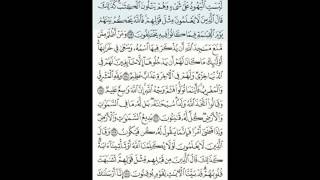 لَيْسَتِ الْيَهُودُ عَلَىٰ شَيْءٍ وَهُمْ يَتْلُونَ الْكِتَٰبَ كَذَٰلِكَ
قَالَ الَّذِينَ لَا يَعْلَمُونَ مِثْلَ قَوْلِهِمْ فَاللَّهُ يَحْكُمُ بَيْنَهُمْ
يَوْمَ الْقِيَٰمَةِ فِيمَا كَانُوا فِيهِ يَخْتَلِفُونَ ۝ وَمَنْ أَظْلَمُ مِمَّن
مَّنَعَ مَسَٰجِدَ اللَّهِ أَن يُذْكَرَ فِيهَا اسْمُهُ وَسَعَىٰ فِي خَرَابِهَا
أُولَٰئِكَ مَا كَانَ لَهُمْ أَن يَدْخُلُوهَا إِلَّا خَائِفِينَ لَهُمْ فِي
الدُّنْيَا خِزْيٌ وَلَهُمْ فِي الْآخِرَةِ عَذَابٌ عَظِيمٌ ۝ وَلِلَّهِ الْمَشْرِقُ
وَالْمَغْرِبُ فَأَيْنَمَا تُوَلُّوا فَثَمَّ وَجْهُ اللَّهِ إِنَّ اللَّهَ وَٰسِعٌ عَلِيمٌ ۝
وَقَالُوا اتَّخَذَ اللَّهُ وَلَدًا سُبْحَٰنَهُ بَل لَّهُ مَا فِي السَّمَٰوَٰتِ
وَالْأَرْضِ كُلٌّ لَّهُ قَٰنِتُونَ ۝ بَدِيعُ السَّمَٰوَٰتِ وَالْأَرْضِ
وَإِذَا قَضَىٰ أَمْرًا فَإِنَّمَا يَقُولُ لَهُ كُن فَيَكُونُ ۝ وَقَالَ
الَّذِينَ لَا يَعْلَمُونَ لَوْلَا يُكَلِّمُنَا اللَّهُ أَوْ تَأْتِينَا آيَةٌ
كَذَٰلِكَ قَالَ الَّذِينَ مِن قَبْلِهِم مِّثْلَ قَوْلِهِمْ تَشَٰبَهَتْ
قُلُوبُهُمْ قَدْ بَيَّنَّا الْآيَٰتِ لِقَوْمٍ يُوقِنُونَ ۝ إِنَّا أَرْسَلْنَٰكَ